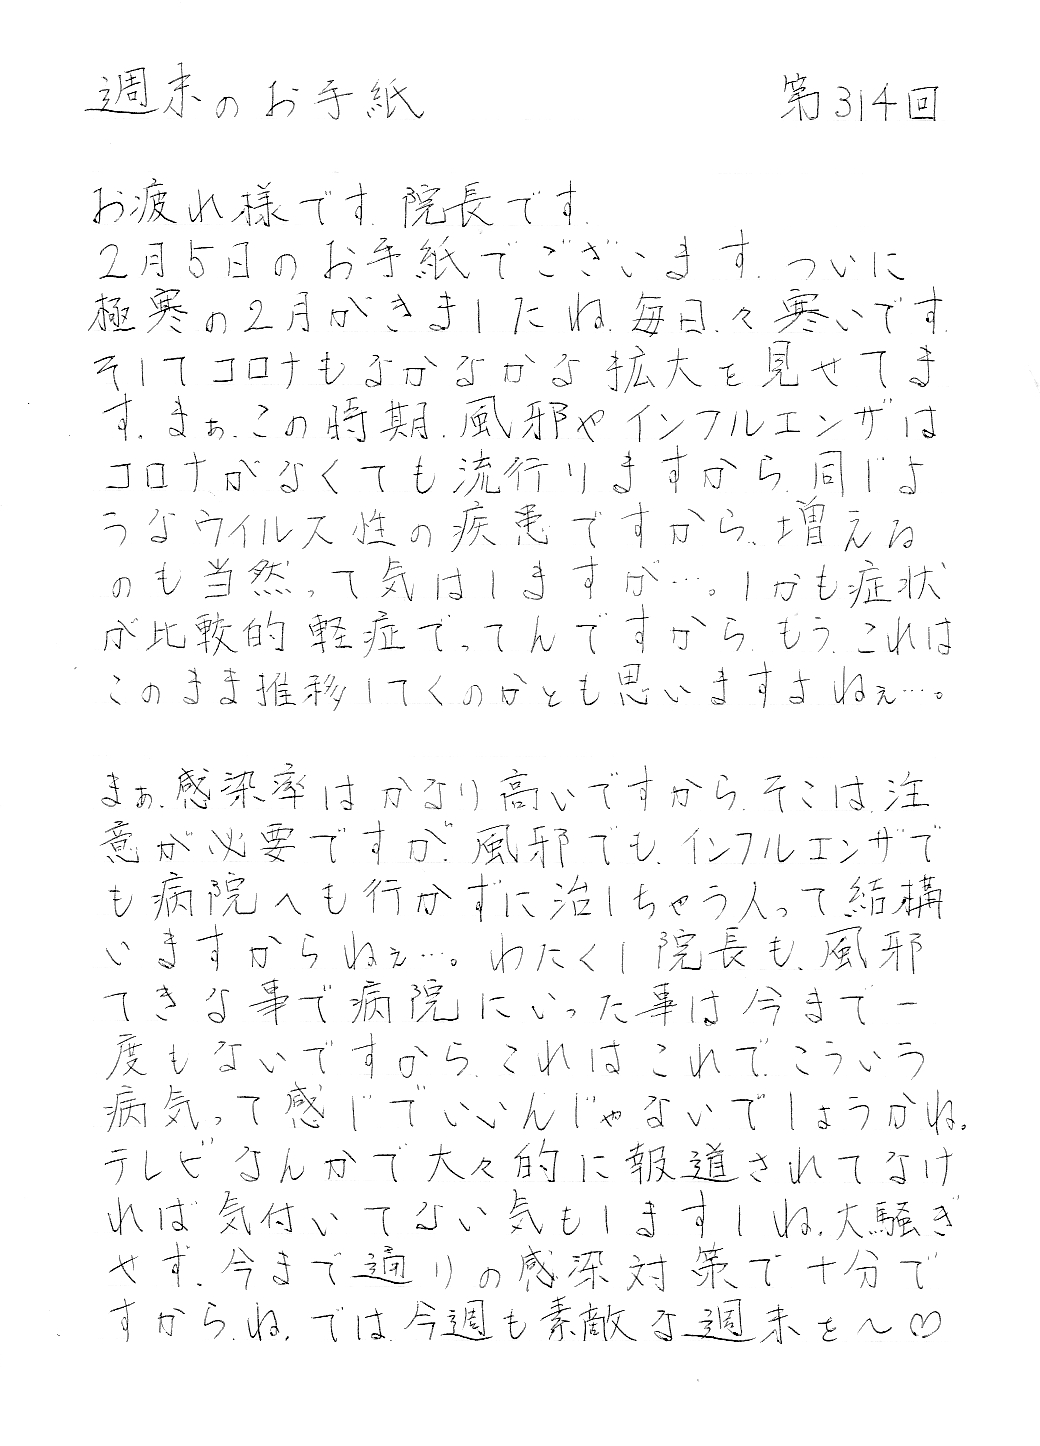 週末のお手紙 第314回
お疲れ様です.院長です.
2月5日のお手紙でございます.ついに
極寒の2月がきましたね.毎日、々寒いです.
そしてコロナもなかなかな拡大を見せてま
す.まぁ、この時期.風邪やインフルエンザは
コロナがなくても流行りますから.同じよ
うなウイルス性の疾患ですから、増える
のも当然って気はしますが…。しかも症状
が比較的軽症でってんですから.もう.これは
このまま推移してくのかとも思いますよねぇ…。
まぁ、感染率はかなり高いですから.そこは.注
意が必要ですが、風邪でも.インフルエンザで
も病院へも行かずに治しちゃう人って結構
いますからねぇ…。わたくし院長も、風邪
てきな事で病院にいった事は今まで一
度もないですから.これはこれで.こういう
病気って感じでいいんじゃないでしょうかね。
テレビなんかで大々的に報道されてなけ
れば気付いてない気もしますしね.大騒ぎ
せず.今まで通りの感染対策で十分で
すからね.では.今週も素敵な週末を〜♡